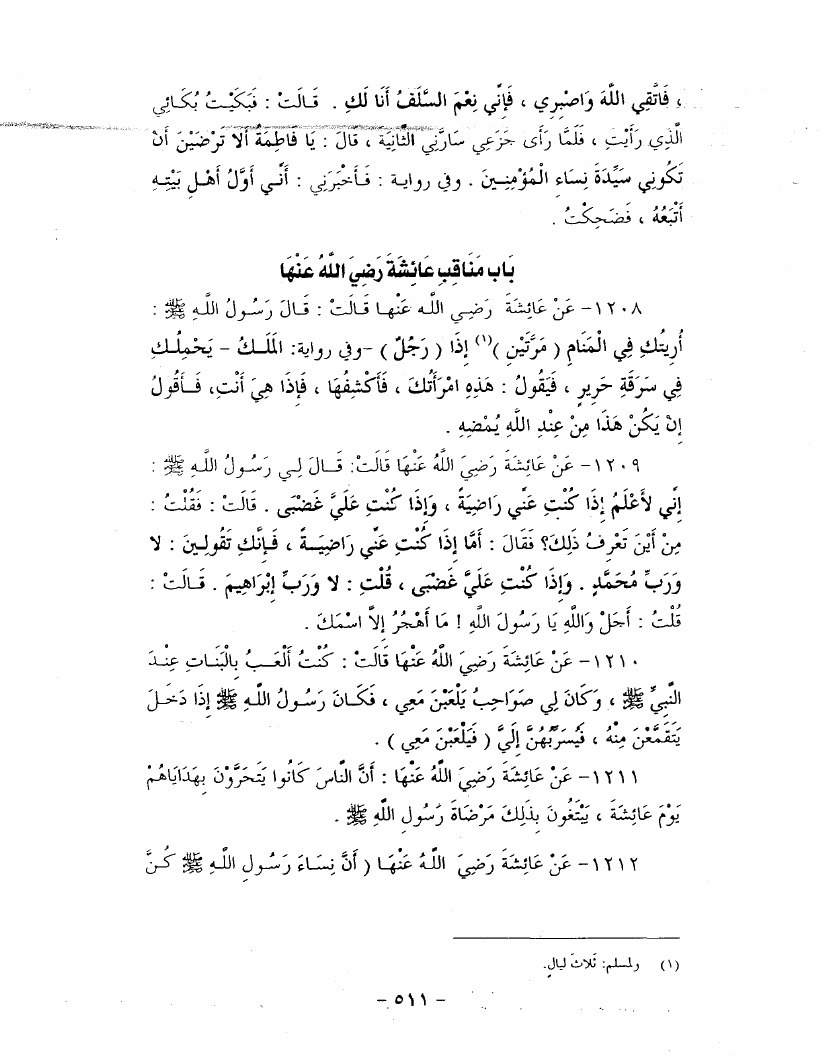 ، فَاتَّقِي اللَّهَ وَاصْبِرِي ، فَإِنِّي نِعْمَ السَّلَفُ أَنَا لَكِ . قَالَتْ : فَبَكَيْتُ بُكَائِي
الَّذِي رَأَيْتِ ، فَلَمَّا رَأَى جَزَعِي سَارَّنِي الثَّانِيَةَ ، قَالَ : يَا فَاطِمَةُ أَلا تَرْضَيْنَ أَنْ
تَكُونِي سَيِّدَةَ نِسَاءِ الْمُؤْمِنِينَ . وفي رواية : فَأَخْبَرَنِي : أَنِّي أَوَّلُ أَهْلِ بَيْتِهِ
أَتْبَعُهُ ، فَضَحِكْتُ .
بَاب مَنَاقِبِ عَائِشَةَ رَضِيَ اللَّهُ عَنْهَا
١٢٠٨- عَنْ عَائِشَةَ رَضِي اللَّه عَنْهَا قَالَتْ : قَالَ رَسُولُ اللَّهِ ﷺ :
أُرِيتُكِ فِي الْمَنَامِ ( مَرَّتَيْنِ )(١) إِذَا ( رَجُلٌ ) -وفي رواية: الْمَلَكُ - يَحْمِلُكِ
فِي سَرَقَةِ حَرِيرٍ ، فَيَقُولُ : هَذِهِ امْرَأَتُكَ ، فَأَكْشِفُهَا ، فَإِذَا هِيَ أَنْتِ، فَأَقُولُ
إِنْ يَكُنْ هَذَا مِنْ عِنْدِ اللَّهِ يُمْضِهِ .
١٢٠٩- عَنْ عَائِشَةَ رَضِيَ اللَّهُ عَنْهَا قَالَتْ: قَالَ لِي رَسُولُ اللَّهِ ﷺ :
إِنِّي لأَعْلَمُ إِذَا كُنْتِ عَنِّي رَاضِيَةً ، وَإِذَا كُنْتِ عَلَيَّ غَضْبَى . قَالَتْ : فَقُلْتُ :
مِنْ أَيْنَ تَعْرِفُ ذَلِكَ؟ فَقَالَ : أَمَّا إِذَا كُنْتِ عَنِّي رَاضِيَةً ، فَإِنَّكِ تَقُولِينَ : لا
وَرَبِّ مُحَمَّدٍ . وَإِذَا كُنْتِ عَلَيَّ غَضْبَى ، قُلْتِ : لا وَرَبِّ إِبْرَاهِيمَ . قَالَتْ :
قُلْتُ : أَجَلْ وَاللَّهِ يَا رَسُولَ اللَّهِ ! مَا أَهْجُرُ إِلاَّ اسْمَكَ .
١٢١٠- عَنْ عَائِشَةَ رَضِيَ اللَّهُ عَنْهَا قَالَتْ : كُنْتُ أَلْعَبُ بِالْبَنَاتِ عِنْدَ
النَّبِيِّ ﷺ ، وَكَانَ لِي صَوَاحِبُ يَلْعَبْنَ مَعِي ، فَكَانَ رَسُولُ اللَّهِ ﷺ إِذَا دَخَلَ
يَتَقَمَّعْنَ مِنْهُ ، فَيُسَرِّبُهُنَّ إِلَيَّ ( فَيَلْعَبْنَ مَعِي ) .
١٢١١- عَنْ عَائِشَةَ رَضِيَ اللَّهُ عَنْهَا : أَنَّ النَّاسَ كَانُوا يَتَحَرَّوْنَ بِهَدَايَاهُمْ
يَوْمَ عَائِشَةَ ، يَبْتَغُونَ بِذَلِكَ مَرْضَاةَ رَسُولِ اللَّهِ ﷺ .
١٢١٢- عَنْ عَائِشَةَ رَضِيَ اللَّهُ عَنْهَا ( أَنَّ نِسَاءَ رَسُولِ اللَّهِ ﷺ كُنَّ
(١) ولمسلم: ثَلاثَ لَيَالٍ.
- ٥١١ -